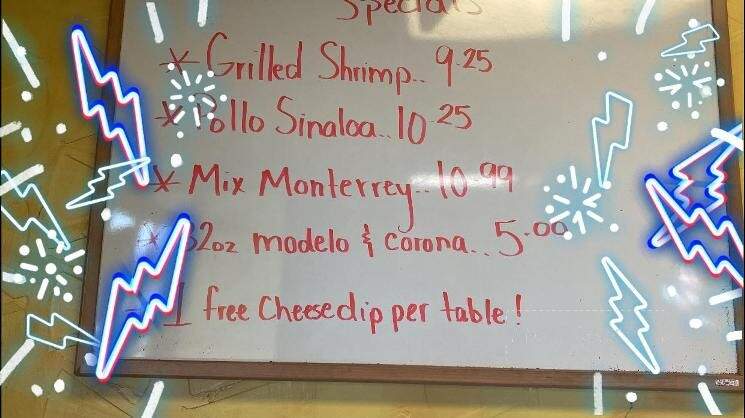 Specials
* Grilled Shrimp.. 9.25
* Pollo Sinaloa.. 10.25
* Mix Monterrey.. 10.99
* 32oz modelo & corona.. 5.00
1 free Cheesedip per table!